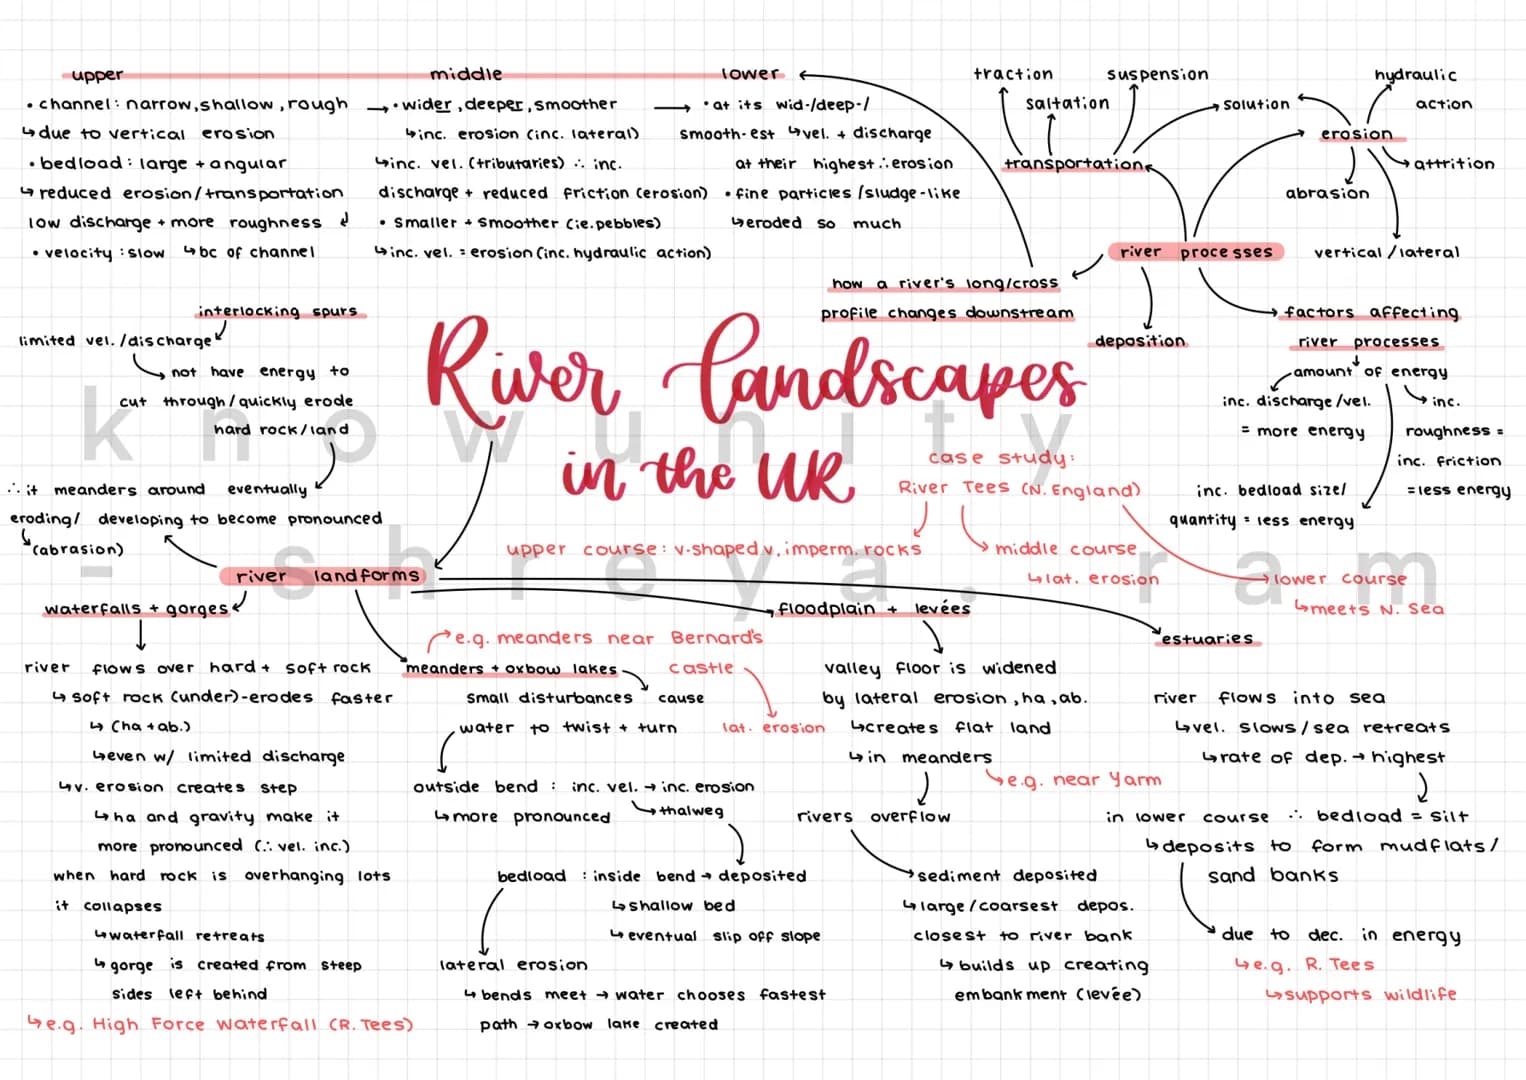 upper
• channel: narrow, shallow, rough
↳ due to vertical erosion
• bedload: large + angular
↳ reduced erosion/transportation
low discharge + more roughness ↲
• velocity: slow ↳ bc of channel
middle
→ • wider, deeper, smoother
↳ inc. erosion (inc. lateral)
↳ inc. vel. (tributaries) ∴ inc.
discharge + reduced friction (erosion)
• smaller + smoother (ie. pebbles)
↳ inc. vel. = erosion (inc. hydraulic action)
lower
→ • at its wid-/deep-/
smooth-est ↳ vel. + discharge
at their highest ∴ erosion
• fine particles/sludge-like
↳ eroded so much
traction
saltation
suspension
solution
transportation
hydraulic
action
erosion
attrition
abrasion
vertical/lateral
river processes
how a river's long/cross
profile changes downstream
deposition
factors affecting
river processes
amount of energy
inc. discharge/vel.
= more energy
inc.
roughness =
inc. friction
= less energy
inc. bedload size/
quantity = less energy
River Landscapes
in the UK
knowunity
- shreya.ram
case study:
River Tees (N. England)
upper course: v-shaped v, imperm. rocks
middle course
↳ lat. erosion
lower course
↳ meets N. Sea
interlocking spurs
limited vel./discharge
not have energy to
cut through/quickly erode
hard rock/land
∴ it meanders around eventually
eroding/ developing to become pronounced
(abrasion)
river landforms
waterfalls + gorges
river flows over hard + soft rock
↳ soft rock (under)-erodes faster
↳ (ha + ab.)
↳ even w/ limited discharge
↳ v. erosion creates step
↳ ha and gravity make it
more pronounced (∴ vel. inc.)
when hard rock is overhanging lots
it collapses
↳ waterfall retreats
↳ gorge is created from steep
sides left behind
↳ e.g. High Force Waterfall (R. Tees)
e.g. meanders near Bernard's
castle
lat. erosion
meanders + oxbow lakes
small disturbances cause
water to twist + turn
outside bend : inc. vel. → inc. erosion
↳ more pronounced
thalweg
bedload : inside bend → deposited
↳ shallow bed
↳ eventual slip off slope
lateral erosion
↳ bends meet → water chooses fastest
path → oxbow lake created
floodplain + levées
valley floor is widened
by lateral erosion, ha, ab.
↳ creates flat land
↳ in meanders
e.g. near Yarm
rivers overflow
sediment deposited
↳ large/coarsest depos.
closest to river bank
↳ builds up creating
embankment (levée)
estuaries
river flows into sea
↳ vel. slows/sea retreats
↳ rate of dep. → highest
in lower course ∴ bedload = silt
↳ deposits to form mudflats/
sand banks
due to dec. in energy
↳ e.g. R. Tees
↳ supports wildlife